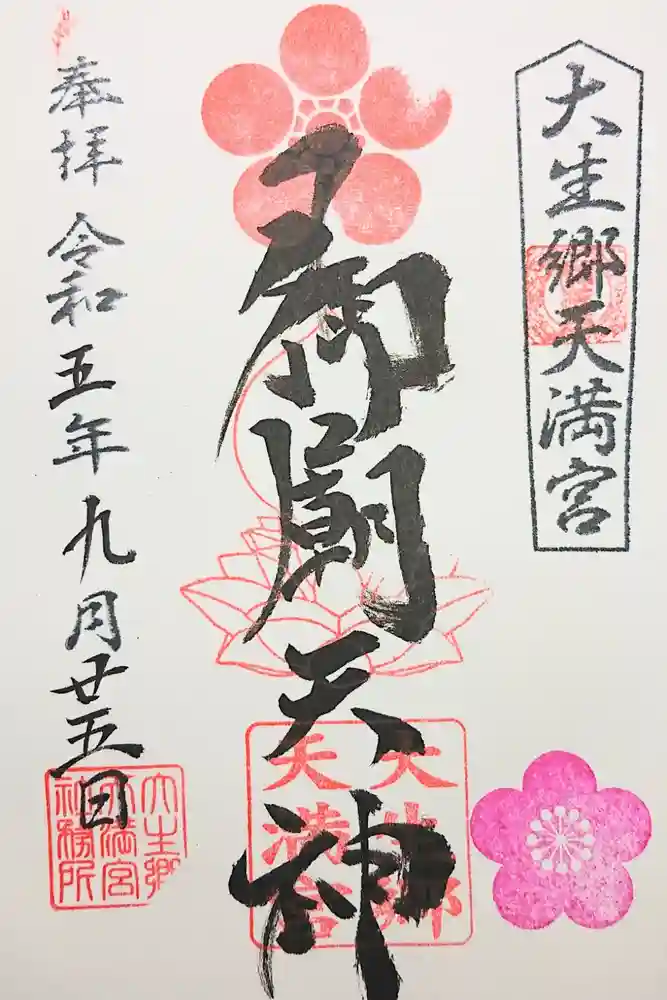 大生郷天満宮
御廟天神
大生郷
天満宮
奉拝 令和五年九月廿五日
大生郷
天満宮
社務所